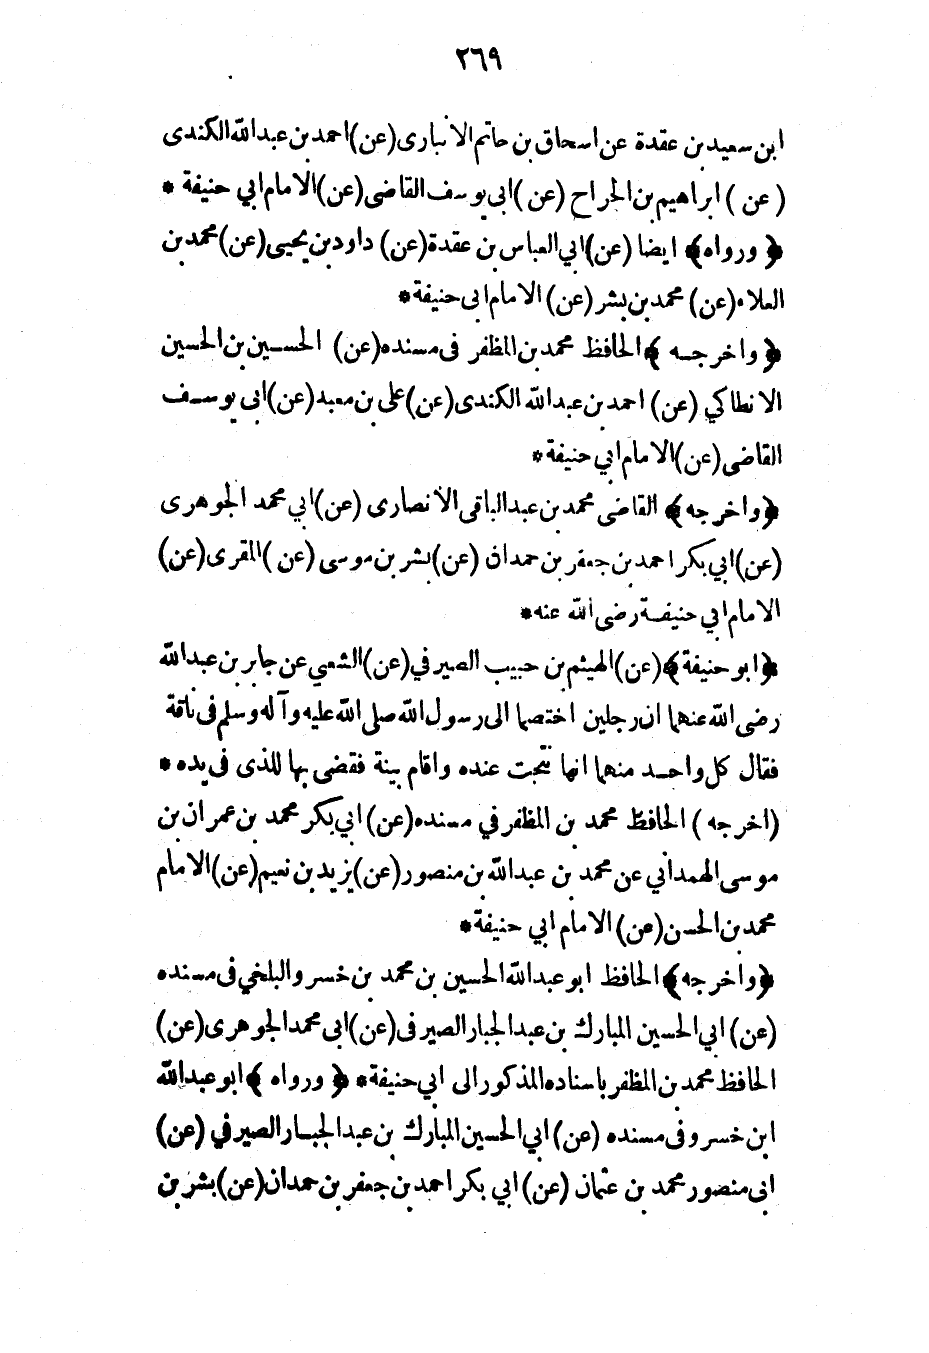 ٢٦٩
ابن سعيد بن عقدة عن اسحاق بن حاتم الانبارى (عن) احمد بن عبدالله الكندى
(عن) ابراهيم بن الجراح (عن) ابى يوسف القاضى (عن) الامام ابي حنيفة *
﴿ ورواه ﴾ ايضا (عن) ابي العباس بن عقدة (عن) داود بن يحيى (عن) محمد بن
العلاء (عن) محمد بن بشر (عن) الامام ابى حنيفة *
﴿ واخرجه ﴾ الحافظ محمد بن المظفر فى مسنده (عن) الحسين بن الحسين
الانطاكي (عن) احمد بن عبدالله الكندى (عن) على بن معبد (عن) ابى يوسف
القاضى (عن) الامام ابي حنيفة *
﴿ واخرجه ﴾ القاضى محمد بن عبدالباقى الانصارى (عن) ابي محمد الجوهرى
(عن) ابي بكر احمد بن جعفر بن حمدان (عن) بشر بن موسى (عن) المقرى (عن)
الامام ابي حنيفة رضى الله عنه *
﴿ ابو حنيفة ﴾ (عن) الهيثم بن حبيب الصيرفي (عن) الشعبي عن جابر بن عبدالله
رضى الله عنهما ان رجلين اختصما الى رسول الله صلى الله عليه وآله وسلم فى ناقة
فقال كل واحد منهما انها نتجت عنده واقام بينة فقضى بها للذى فى يده *
(اخرجه) الحافظ محمد بن المظفر في مسنده (عن) ابي بكر محمد بن عمران بن
موسى الهمداني عن محمد بن عبدالله بن منصور (عن) يزيد بن نعيم (عن) الامام
محمد بن الحسن (عن) الامام ابي حنيفة *
﴿ واخرجه ﴾ الحافظ ابو عبدالله الحسين بن محمد بن خسرو البلخي فى مسنده
(عن) ابي الحسين المبارك بن عبدالجبار الصيرفى (عن) ابى محمد الجوهرى (عن)
الحافظ محمد بن المظفر باسناده المذكور الى ابي حنيفة * ﴿ ورواه ﴾ ابو عبدالله
ابن خسرو فى مسنده (عن) ابي الحسين المبارك بن عبدالجبار الصيرفي (عن)
ابى منصور محمد بن عثمان (عن) ابي بكر احمد بن جعفر بن حمدان (عن) بشر بن